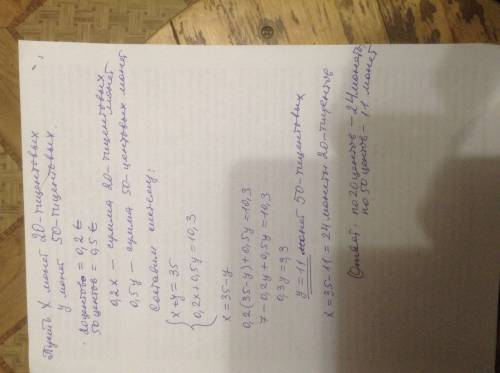 Пусть x монет 20-тицентовых
y монет 50-тицентовых.
20центов = 0,2 €
50центов = 0,5 €
0,2x — сумма 20-тицентовых монет
0,5y — сумма 50-центовых монет
Составим систему:
x+y=35
0,2x+0,5y=10,3
x=35-y
0,2(35-y)+0,5y=10,3
7-0,2y+0,5y=10,3
0,3y=3,3
y=11 монет 50-тицентовых
x=35-11=24 монеты 20-тицентов
Ответ: по 20центов — 24 монеты
по 50центов — 11 монет